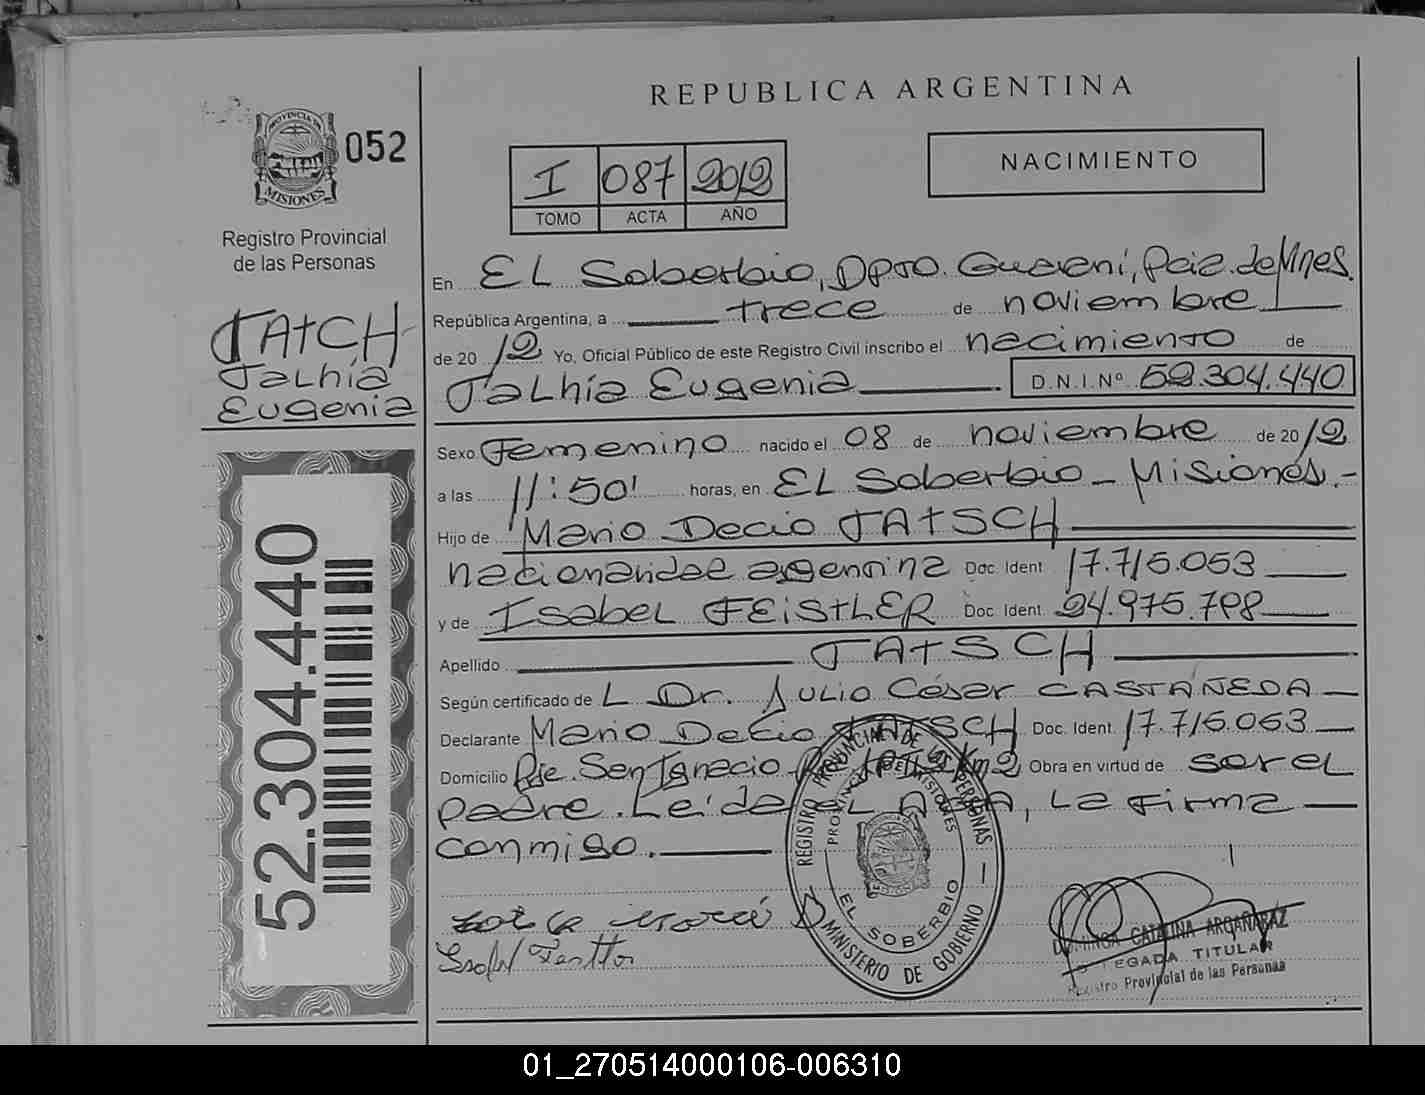 REPUBLICA ARGENTINA
PROVINCIA DE
MISIONES
052
Registro Provincial
de las Personas
TATCH
Talhía
Eugenia
52.304.440
I 087 2012
TOMO ACTA AÑO
NACIMIENTO
En El Soberbio, Dpto. Guaraní, Pcia. de Mnes.
República Argentina, a trece de noviembre
de 2012 Yo, Oficial Público de este Registro Civil inscribo el nacimiento de
Talhía Eugenia D.N.I.Nº 52.304.440
Sexo Femenino nacido el 08 de noviembre de 2012
a las 11:50' horas, en El Soberbio - Misiones.-
Hijo de Mario Decio TATSCH
nacionalidad argentina Doc. Ident. 17.715.053
y de Isabel FEISTLER Doc. Ident. 24.975.798
Apellido TATSCH
Según certificado de L Dr. Julio César CASTAÑEDA
Declarante Mario Decio TATSCH Doc. Ident. 17.715.053
Domicilio Pje. San Ignacio Km2 Obra en virtud de ser el
padre. Leída el Acta, la firma
conmigo.
REGISTRO PROVINCIAL DE LAS PERSONAS
PROVINCIA DE MISIONES
EL SOBERBIO
MINISTERIO DE GOBIERNO
CATALINA ARGAÑARAZ
DELEGADA TITULAR
Registro Provincial de las Personas
01_270514000106-006310